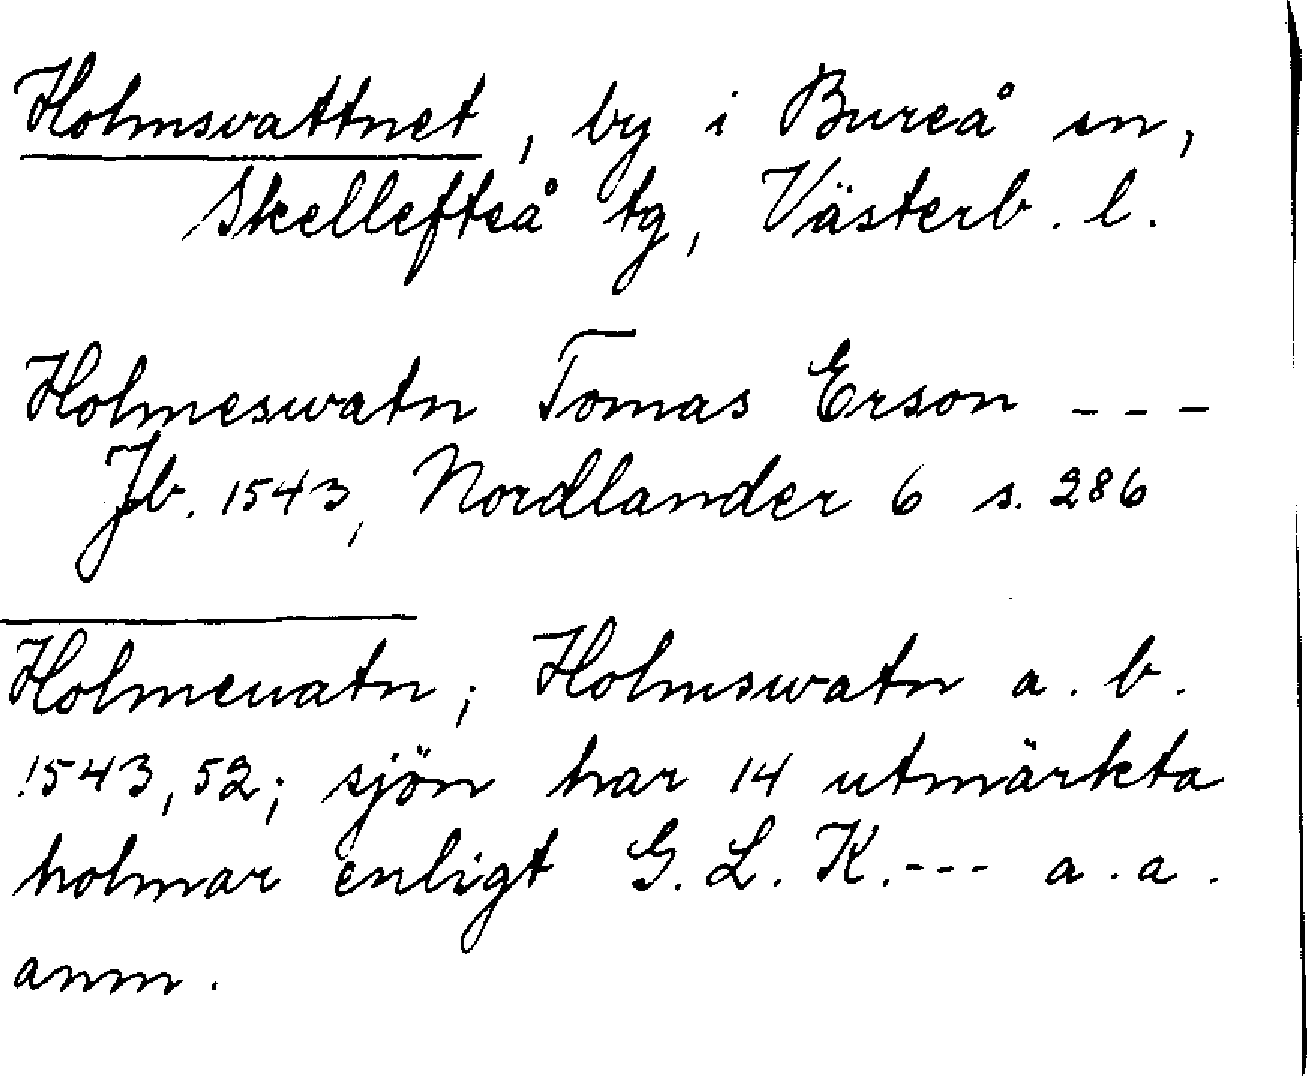 Holmsvattnet, by i Bureå sn,
Skellefteå tg, Västerb. l.
Holmeswatn Tomas Erson ---
Jb. 1543, Nordlander 6 s. 286
Holmeuatn; Holmswatn a. b.
1543, 52; sjön har 14 utmärkta
holmar enligt G. L. K. --- a. a.
anm.